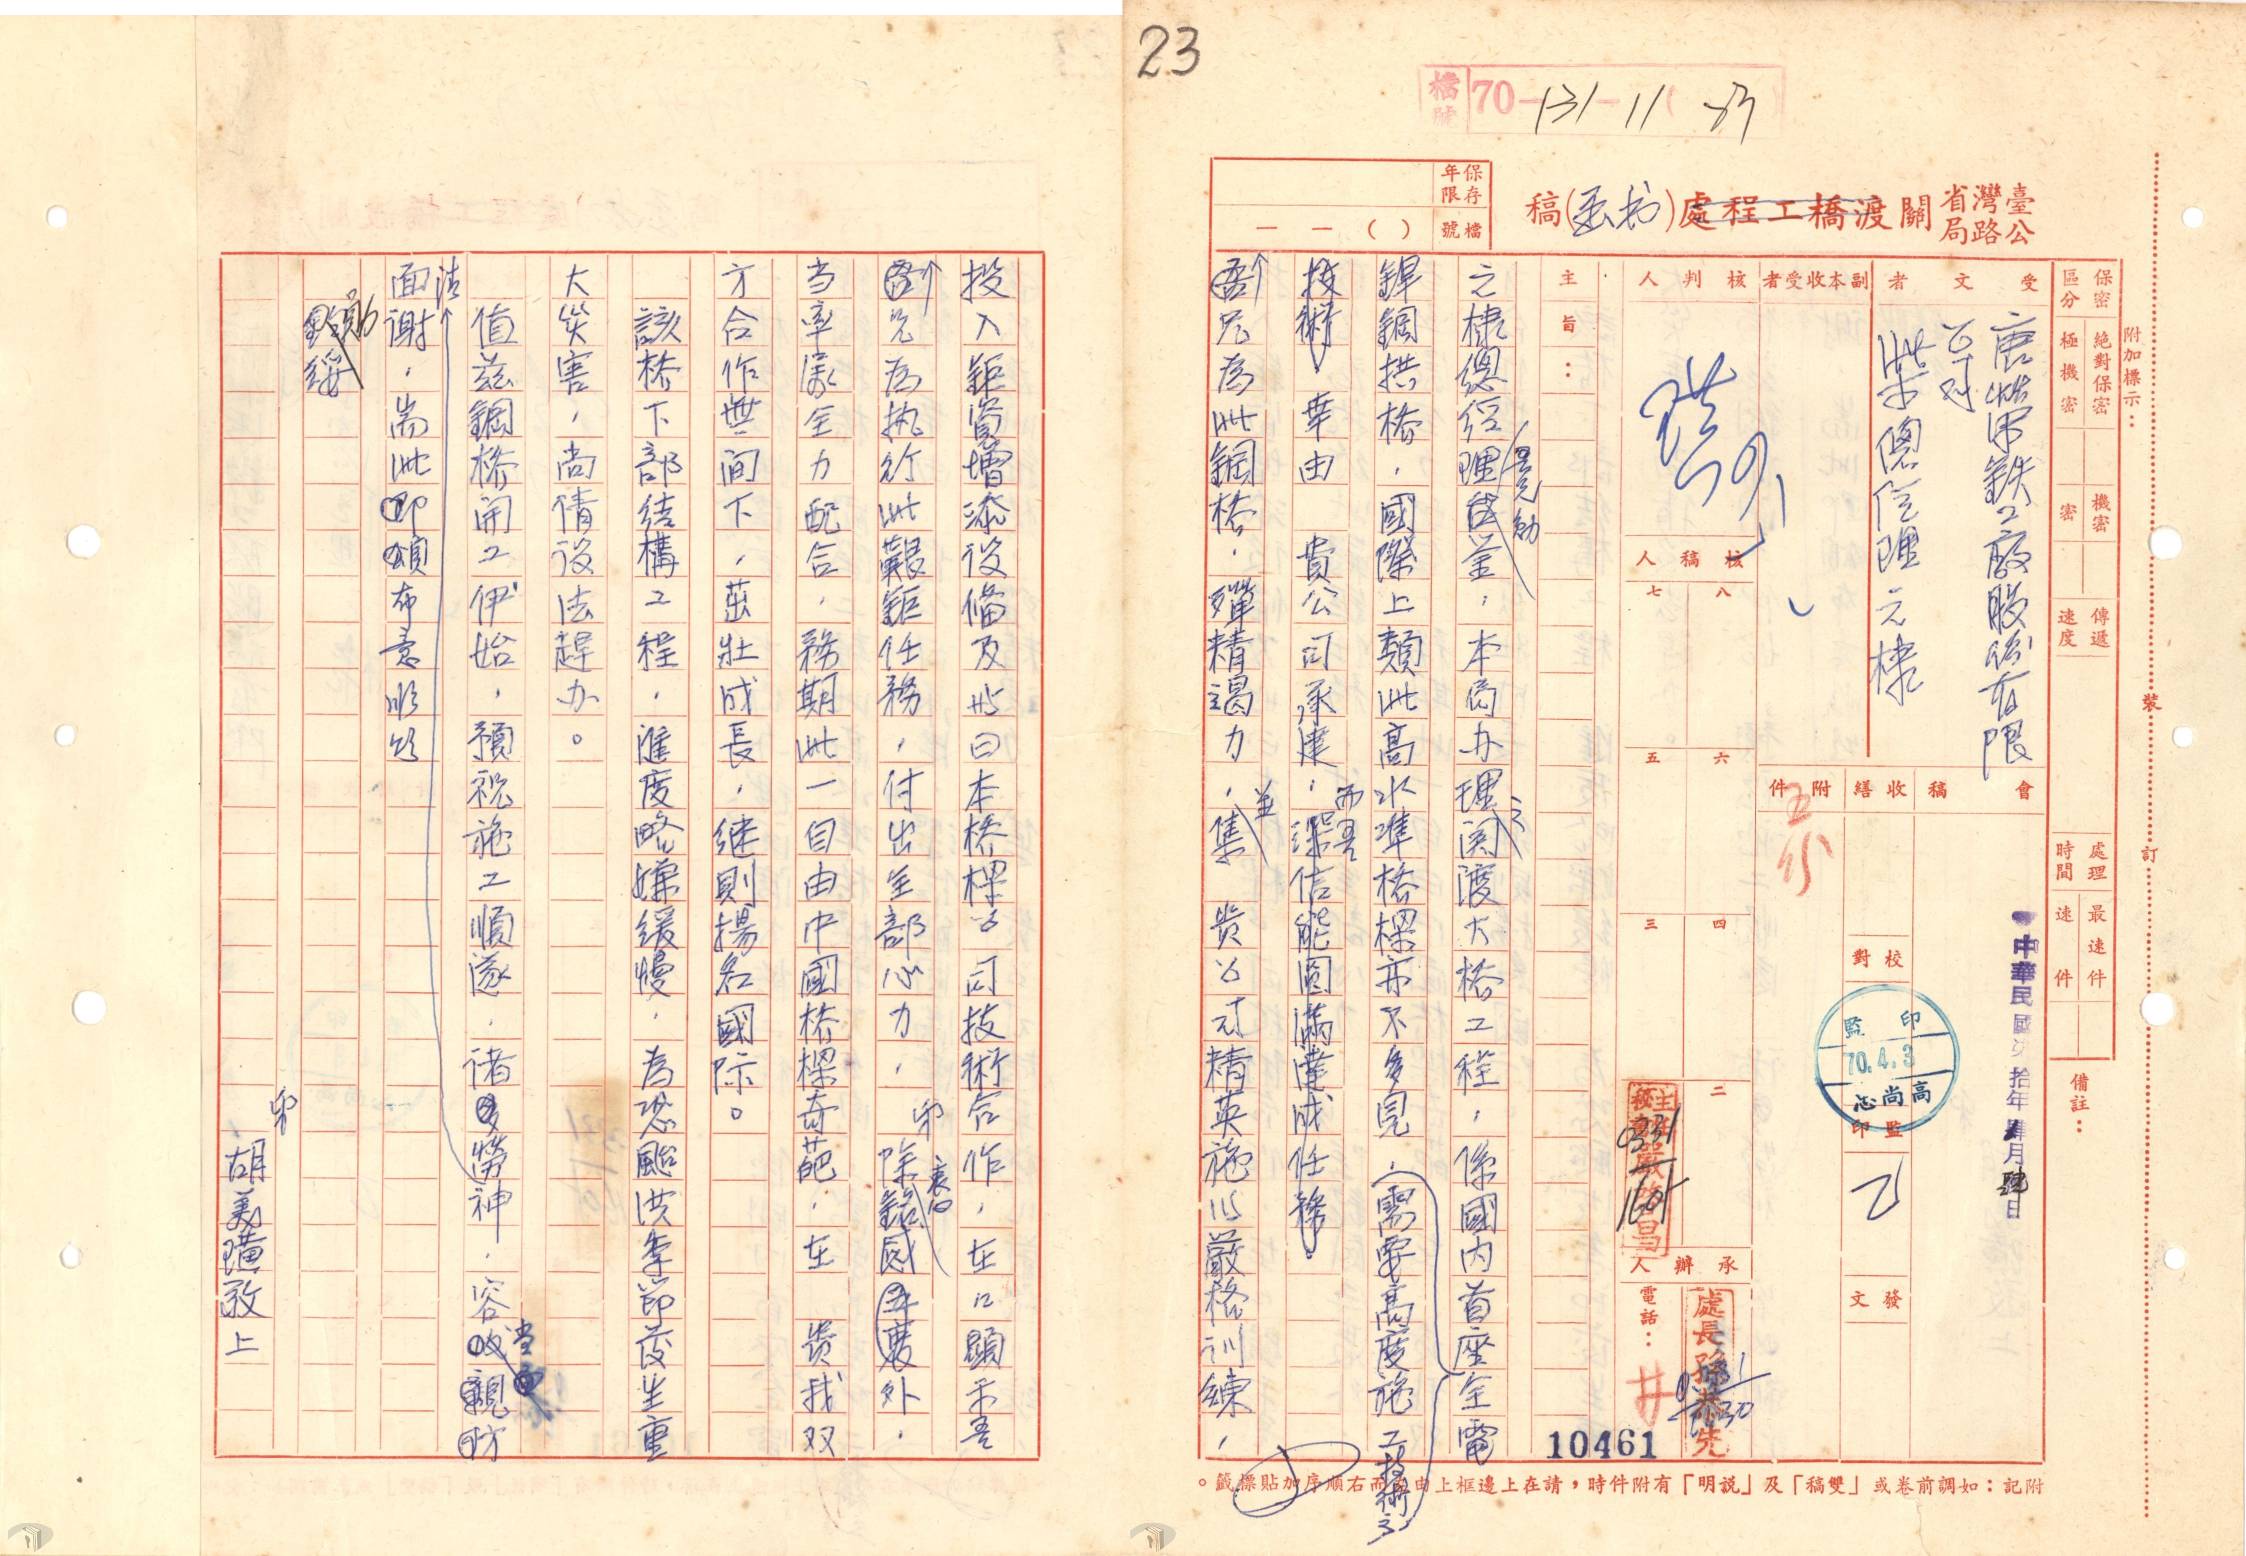 23
檔號 70-131-11
臺灣省公路局關渡橋工程處(函書)稿
保存年限
檔號
( ) 一 一
附加標示：
保密區分
絕對保密
極機密
機密
密
傳遞速度
處理時間
最速件
速件
備註：
裝
訂
受文者
唐榮鐵工廠股份有限公司
總經理元棣
副本收受者
會稿
收繕附件
校對
監印
發文
中華民國柒拾年肆月 日
監印
70.4.3
高尚志
核判人
核稿人
八
七
六
五
四
三
二
主任秘書嚴啟昌
0331
1601
承辦人
電話：
處長孫恭先
10461
主旨：
元棣總經理吾兄勛鑒，本局辦理之関渡大橋工程，係國內首座全電
銲鋼拱橋，國際上類此高水準橋樑亦不多見，需要高度施工技術之
技術，幸由 貴公司承建，而吾深信能圓滿達成任務。
吾兄為此鋼橋，殫精竭力，並集 貴公司精英施以嚴格訓練，
投入鉅資增添設備及與日本橋樑公司技術合作，在在顯示吾
兄為执行此艱鉅任務，付出全部心力，除衷心銘感外，
当率屬全力配合，務期此一自由中國橋樑奇葩，在 貴我双
方合作無間下，茁壯成長，継則揚名國际。
該橋下部结構工程，進度略嫌緩慢，為恐颱洪季節發生重
大災害，尚请設法趕办。
值茲鋼橋開工伊始，預祝施工順遂，諸多勞神，容
面謝，耑此布意順頌
勛綏
胡美璜敬上
附記：如調前卷或「雙稿」及「説明」有附件時，請在上邊框上由左而右順序加貼標籤。